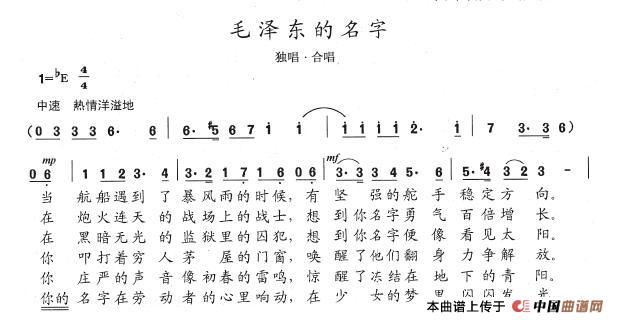 毛泽东的名字
独唱·合唱
1=♭E 4/4
中速 热情洋溢地
(0 3 3 3 6· 6 | 6· #5 6 7 i i | i i i i 2· i | 7 3· 3 6)
mp mf
0 6 | 1 1 2 3· 4 | 3· 2 1 7 1 0 6 | 3· 3 3 4 5 6 | 5· #4 3 2 3 – |
当 航船遇到了暴风雨的时候,有坚强的舵手稳定方向。
在 炮火连天的战场上的战士,想到你名字勇气百倍增长。
在 黑暗无光的监狱里的囚犯,想到你名字便像看见太阳。
你 叩打着穷人茅屋的门窗,唤醒了他们翻身力争解放。
你 庄严的声音像初春的雷鸣,惊醒了冻结在地下的青阳。
你的名字在劳动者的心里响动,在少女的梦里闪闪发光
本曲谱上传于 中国曲谱网